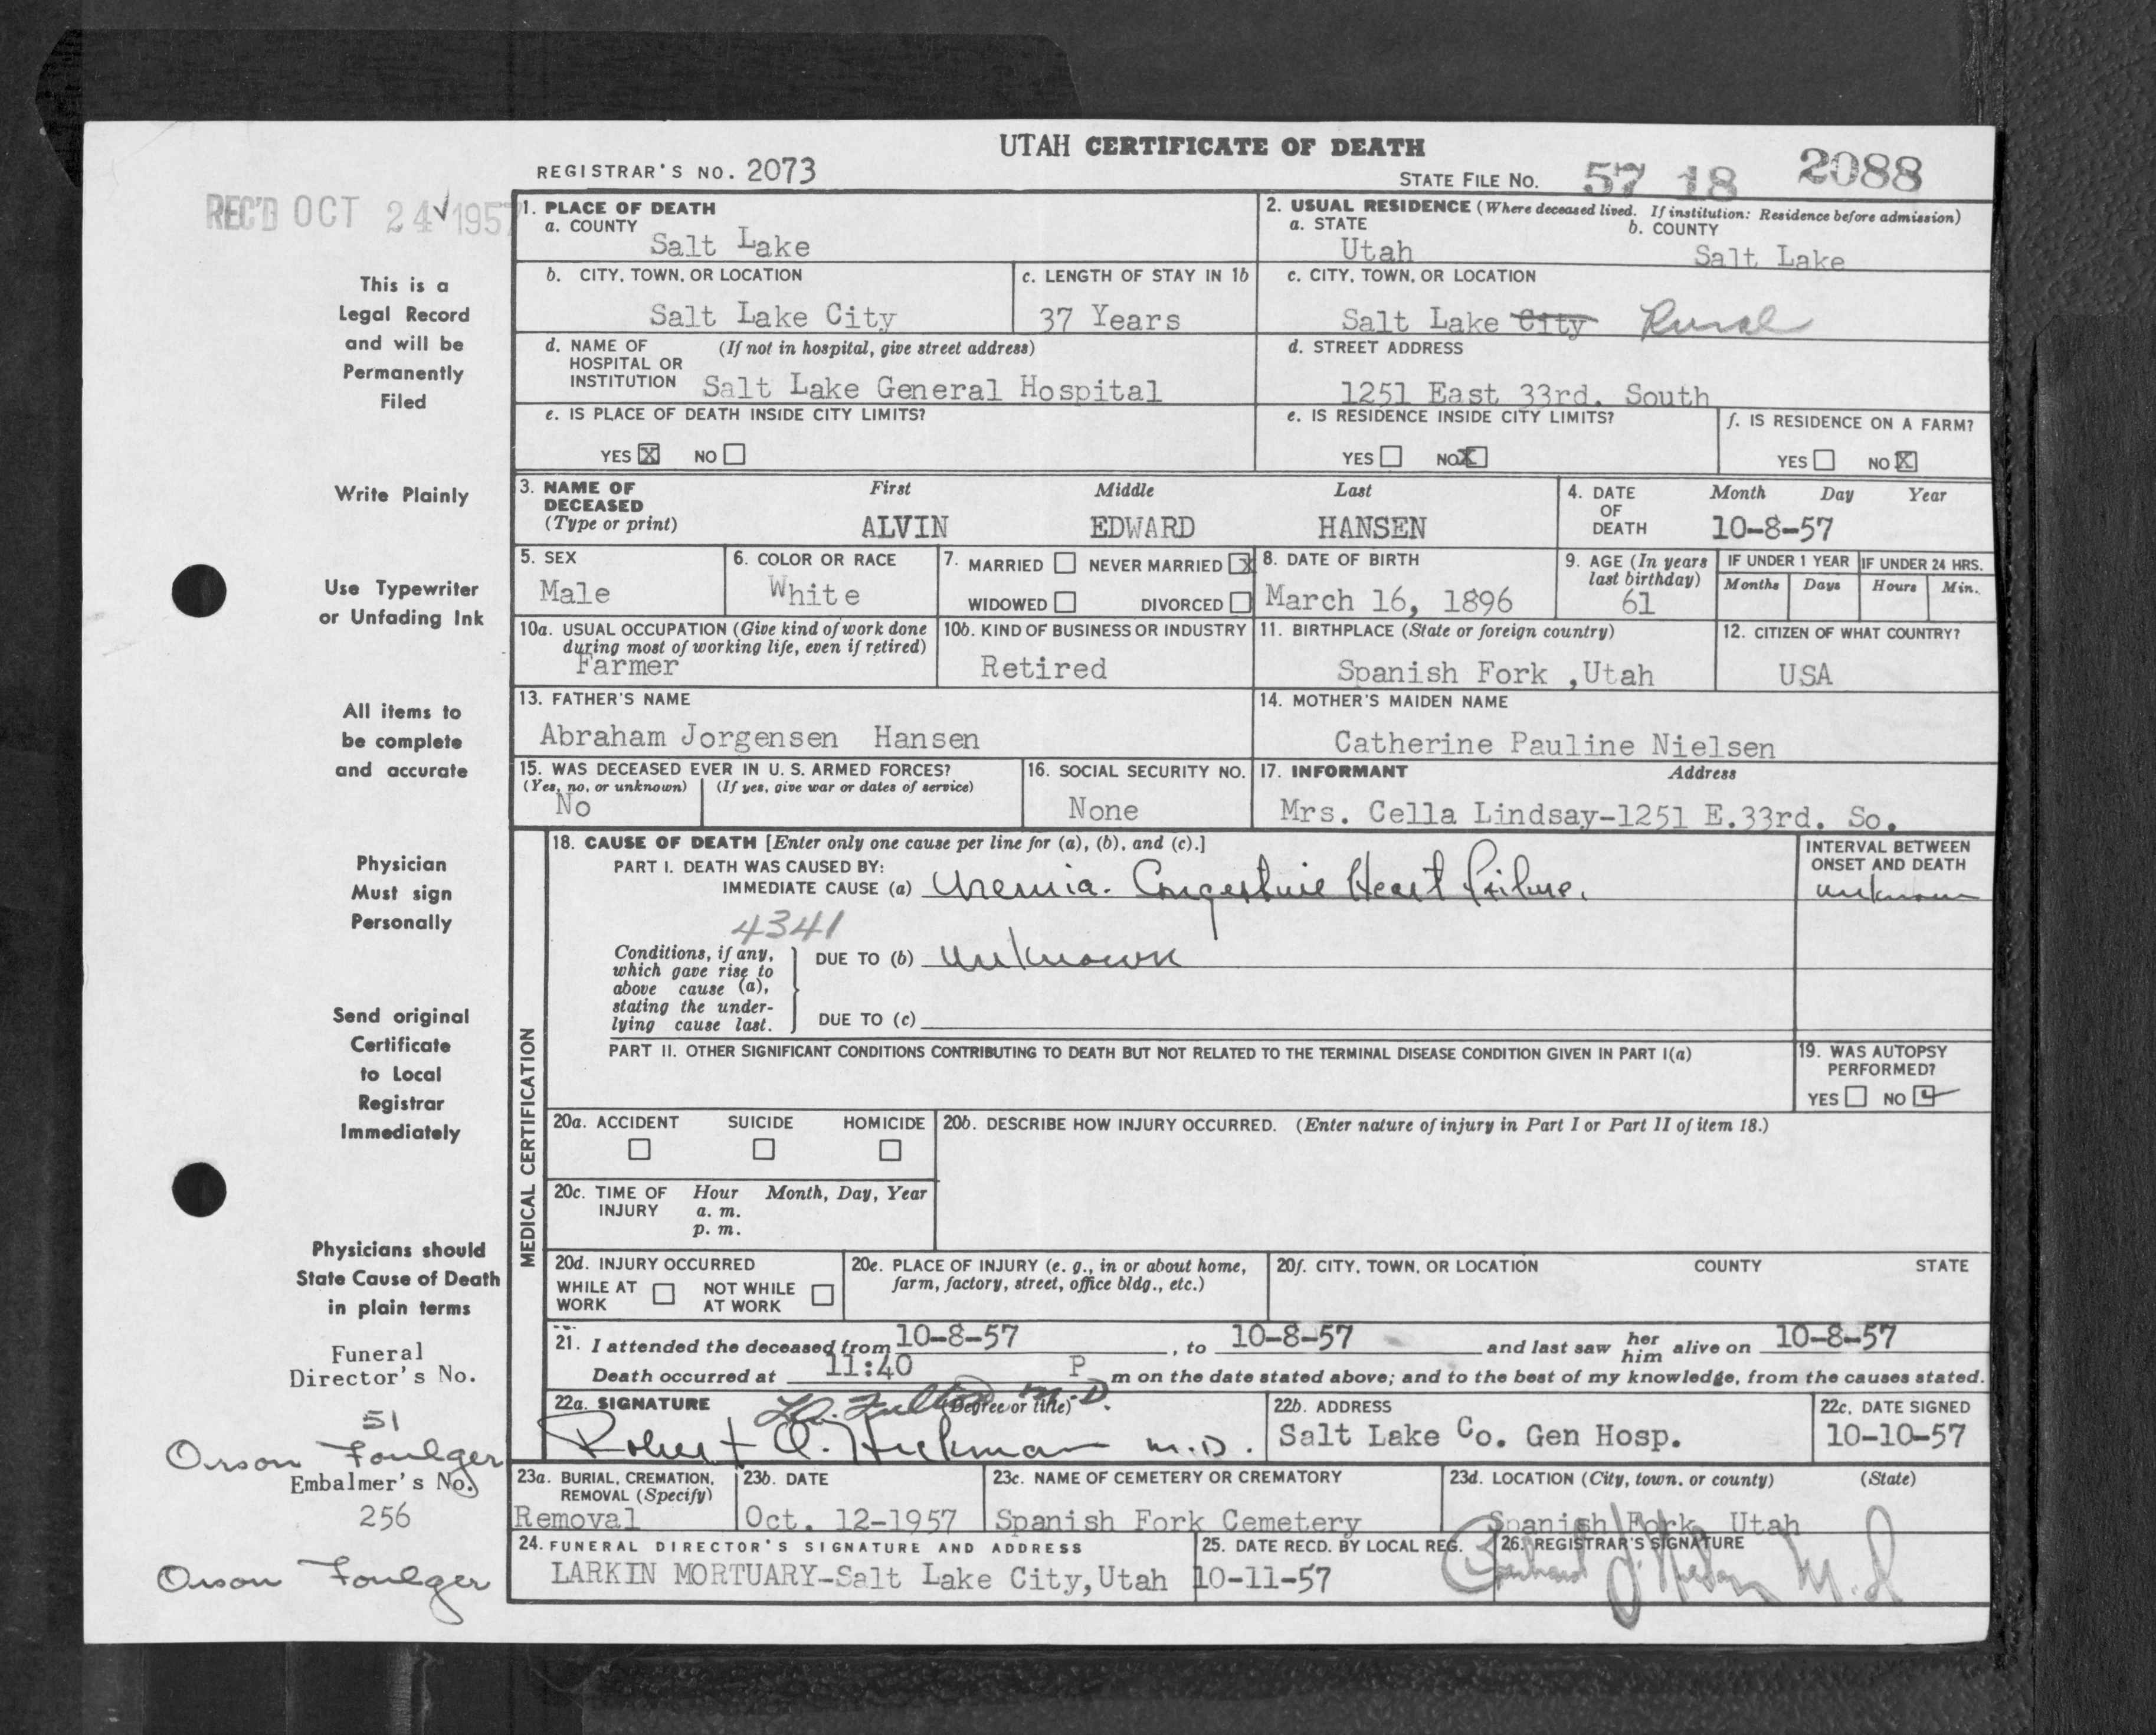 UTAH CERTIFICATE OF DEATH
REGISTRAR'S NO. 2073
STATE FILE NO. 57 18 2088
REC'D OCT 24 1957
This is a
Legal Record
and will be
Permanently
Filed
Write Plainly
Use Typewriter
or Unfading Ink
All items to
be complete
and accurate
Physician
Must sign
Personally
Send original
Certificate
to Local
Registrar
Immediately
Physicians should
State Cause of Death
in plain terms
Funeral
Director's No.
51
Orson Foulger
Embalmer's No.
256
Orson Foulger
1. PLACE OF DEATH
a. COUNTY
Salt Lake
2. USUAL RESIDENCE (Where deceased lived. If institution: Residence before admission)
a. STATE b. COUNTY
Utah Salt Lake
b. CITY, TOWN, OR LOCATION
Salt Lake City
c. LENGTH OF STAY IN 1b
37 Years
c. CITY, TOWN, OR LOCATION
Salt Lake City Rural
d. NAME OF (If not in hospital, give street address)
HOSPITAL OR
INSTITUTION Salt Lake General Hospital
d. STREET ADDRESS
1251 East 33rd. South
e. IS PLACE OF DEATH INSIDE CITY LIMITS?
YES X NO
e. IS RESIDENCE INSIDE CITY LIMITS?
YES NO X
f. IS RESIDENCE ON A FARM?
YES NO X
3. NAME OF First Middle Last
DECEASED
(Type or print) ALVIN EDWARD HANSEN
4. DATE Month Day Year
OF
DEATH 10-8-57
5. SEX
Male
6. COLOR OR RACE
White
7. MARRIED NEVER MARRIED X
WIDOWED DIVORCED
8. DATE OF BIRTH
March 16, 1896
9. AGE (In years
last birthday)
61
IF UNDER 1 YEAR IF UNDER 24 HRS.
Months Days Hours Min.
10a. USUAL OCCUPATION (Give kind of work done
during most of working life, even if retired)
Farmer
10b. KIND OF BUSINESS OR INDUSTRY
Retired
11. BIRTHPLACE (State or foreign country)
Spanish Fork ,Utah
12. CITIZEN OF WHAT COUNTRY?
USA
13. FATHER'S NAME
Abraham Jorgensen Hansen
14. MOTHER'S MAIDEN NAME
Catherine Pauline Nielsen
15. WAS DECEASED EVER IN U. S. ARMED FORCES?
(Yes, no, or unknown) (If yes, give war or dates of service)
No
16. SOCIAL SECURITY NO.
None
17. INFORMANT Address
Mrs. Cella Lindsay-1251 E.33rd. So.
MEDICAL CERTIFICATION
18. CAUSE OF DEATH [Enter only one cause per line for (a), (b), and (c).]
PART I. DEATH WAS CAUSED BY:
IMMEDIATE CAUSE (a) Uremia. Congestive Heart Failure.
INTERVAL BETWEEN
ONSET AND DEATH
unknown
4341
Conditions, if any,
which gave rise to
above cause (a),
stating the under-
lying cause last.
DUE TO (b) unknown
DUE TO (c)
PART II. OTHER SIGNIFICANT CONDITIONS CONTRIBUTING TO DEATH BUT NOT RELATED TO THE TERMINAL DISEASE CONDITION GIVEN IN PART I(a)
19. WAS AUTOPSY
PERFORMED?
YES NO
20a. ACCIDENT SUICIDE HOMICIDE
20b. DESCRIBE HOW INJURY OCCURRED. (Enter nature of injury in Part I or Part II of item 18.)
20c. TIME OF Hour Month, Day, Year
INJURY a. m.
p. m.
20d. INJURY OCCURRED
WHILE AT NOT WHILE
WORK AT WORK
20e. PLACE OF INJURY (e. g., in or about home,
farm, factory, street, office bldg., etc.)
20f. CITY, TOWN, OR LOCATION COUNTY STATE
21. I attended the deceased from 10-8-57, to 10-8-57 and last saw her him alive on 10-8-57
Death occurred at 11:40 P m on the date stated above; and to the best of my knowledge, from the causes stated.
22a. SIGNATURE (Degree or title) M.D.
Robert Q. Hickman M.D.
22b. ADDRESS
Salt Lake Co. Gen Hosp.
22c. DATE SIGNED
10-10-57
23a. BURIAL, CREMATION,
REMOVAL (Specify)
Removal
23b. DATE
Oct. 12-1957
23c. NAME OF CEMETERY OR CREMATORY
Spanish Fork Cemetery
23d. LOCATION (City, town, or county) (State)
Spanish Fork, Utah
24. FUNERAL DIRECTOR'S SIGNATURE AND ADDRESS
LARKIN MORTUARY-Salt Lake City,Utah
25. DATE RECD. BY LOCAL REG.
10-11-57
26. REGISTRAR'S SIGNATURE